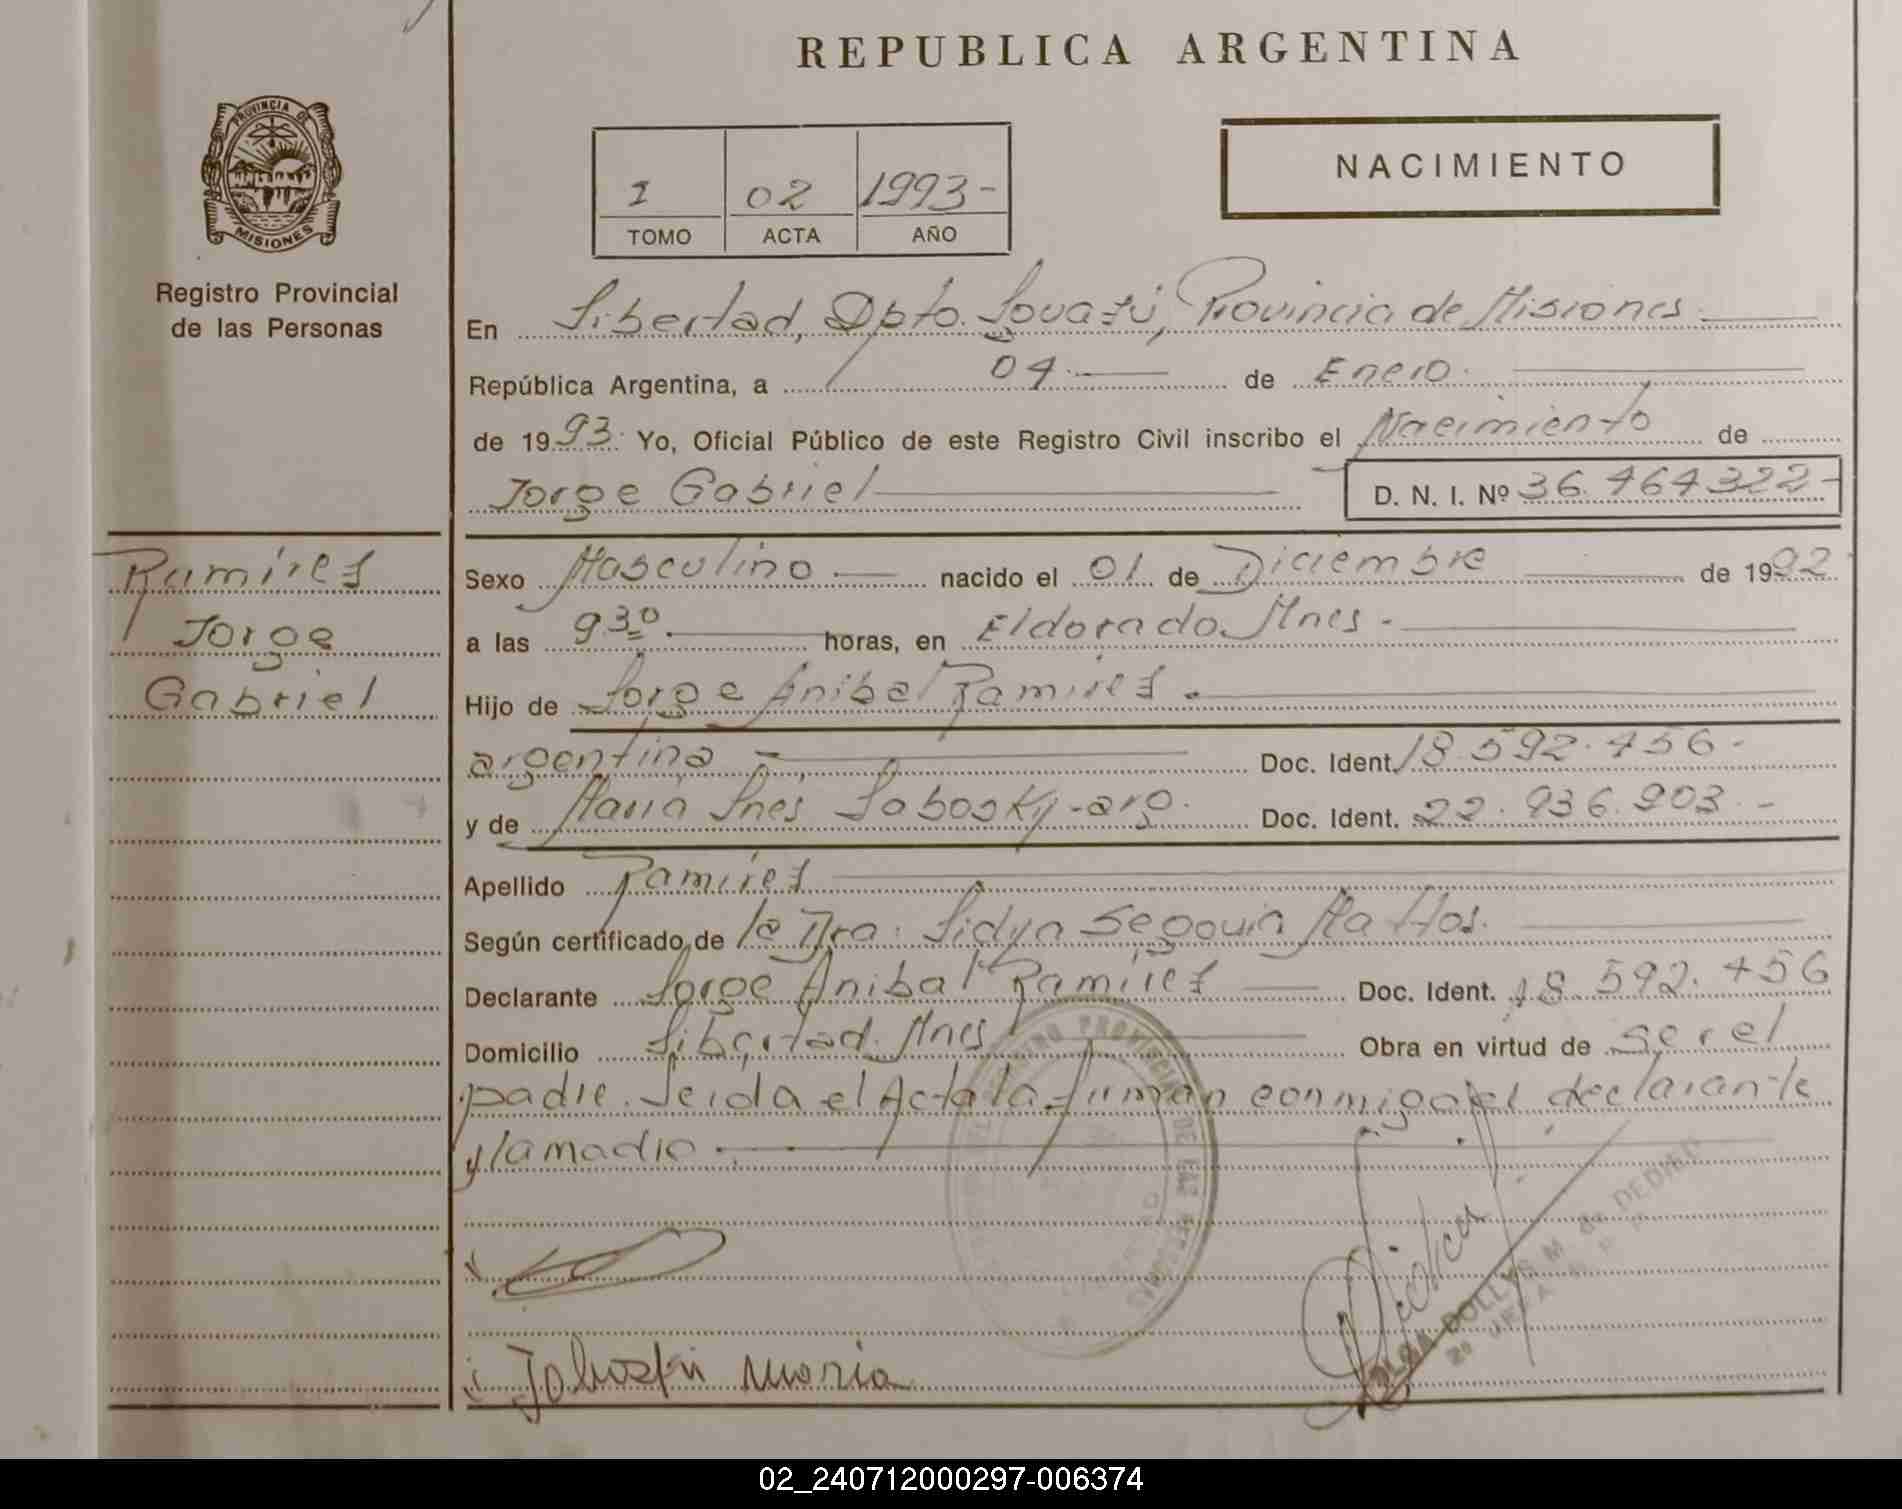 REPUBLICA ARGENTINA
PROVINCIA DE
MISIONES
Registro Provincial
de las Personas
NACIMIENTO
I 02 1993-
TOMO ACTA AÑO
En Libertad, Dpto. Iguazú, Provincia de Misiones.
República Argentina, a 04. de Enero.
de 1993. Yo, Oficial Público de este Registro Civil inscribo el Nacimiento de
Jorge Gabriel D. N. I. Nº 36.464322-
Ramires
Jorge
Gabriel
Sexo Masculino nacido el 01 de Diciembre de 1992
a las 930. horas, en Eldorado. Mnes.
Hijo de Jorge Anibal Ramires.
argentina - Doc. Ident. 18.592.456-
y de María Inés - arg. Doc. Ident. 22.936.903.-
Apellido Ramires
Según certificado de la Dra. Lidya Segovia Mattos.
Declarante Jorge Anibal Ramires Doc. Ident. 18.592.456
Domicilio Libertad. Mnes Obra en virtud de ser el
padre. Leida el Acta la firman conmigo el declarante
y la madre
REGISTRO PROVINCIAL DE LAS PERSONAS
María
OLGA DOLLYS M. de
02_240712000297-006374